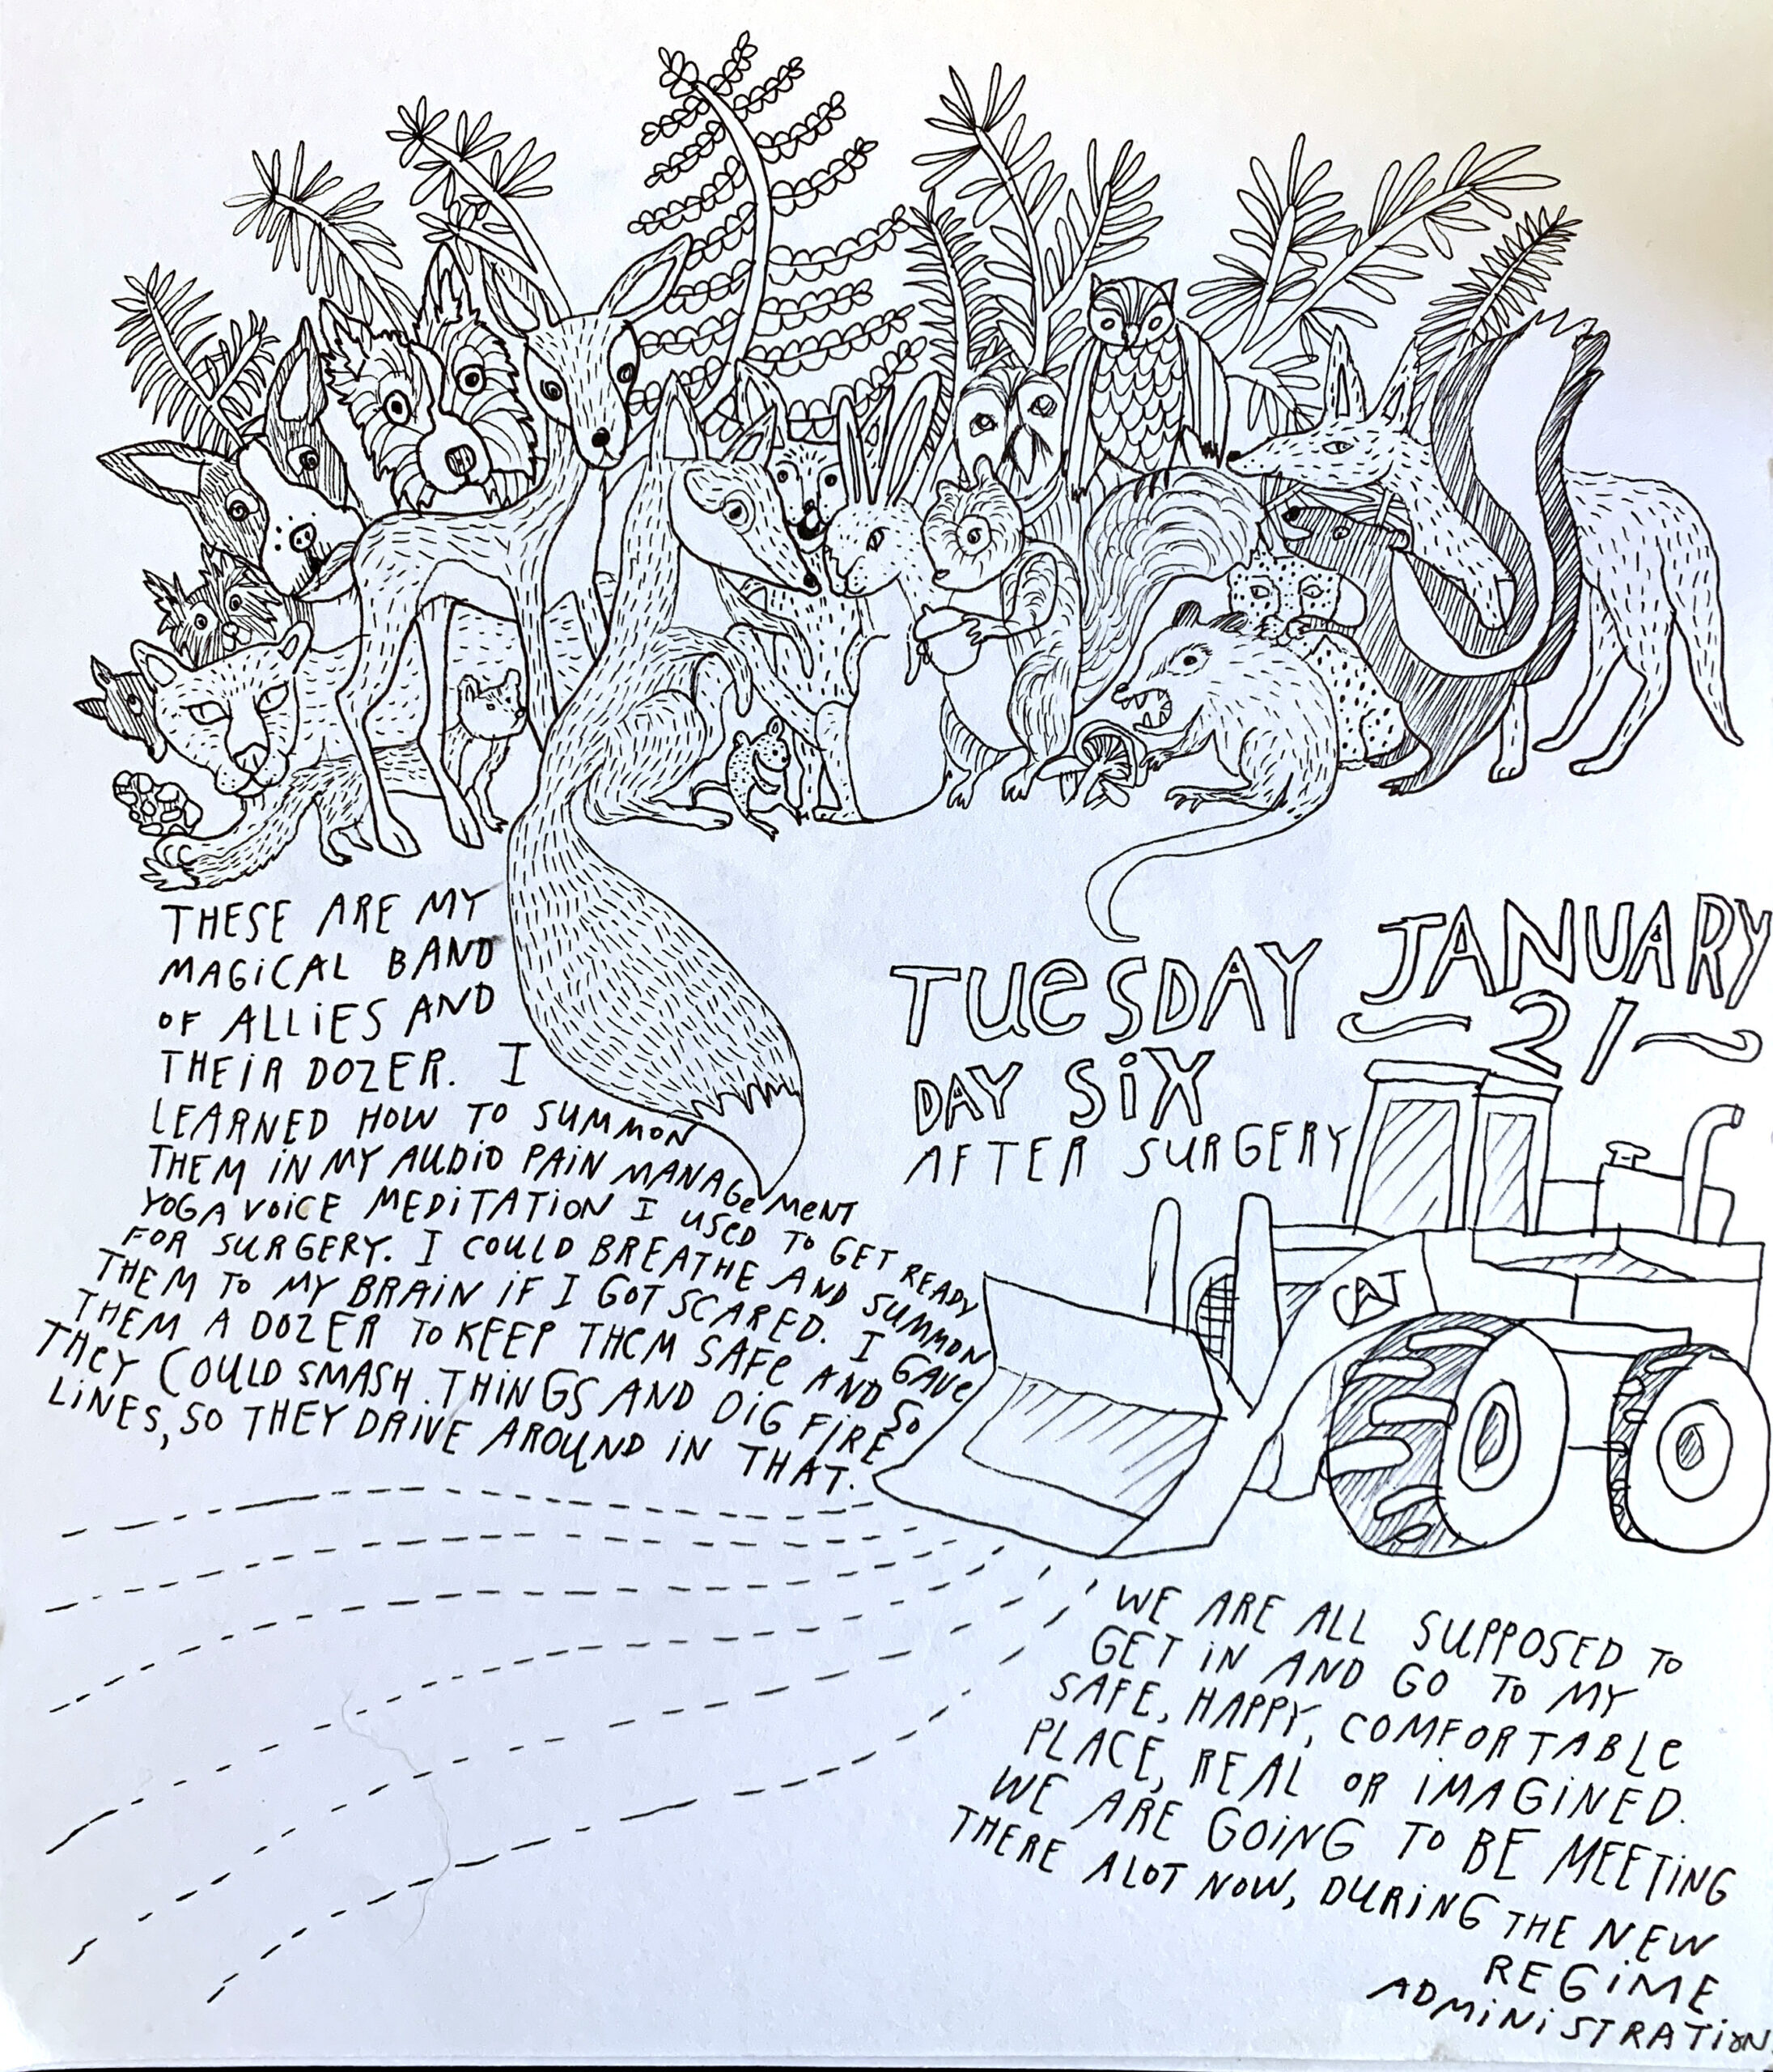 THESE ARE MY
MAGICAL BAND
OF ALLIES AND
THEIR DOZER. I
LEARNED HOW TO SUMMON
THEM IN MY AUDIO PAIN MANAGEMENT
YOGA VOICE MEDITATION I USED TO GET READY
FOR SURGERY. I COULD BREATHE AND SUMMON
THEM TO MY BRAIN IF I GOT SCARED. I GAVE
THEM A DOZER TO KEEP THEM SAFE AND SO
THEY COULD SMASH THINGS AND DIG FIRE
LINES, SO THEY DRIVE AROUND IN THAT.
TUESDAY JANUARY
21
DAY SIX
AFTER SURGERY
CAT
WE ARE ALL SUPPOSED TO
GET IN AND GO TO MY
SAFE, HAPPY, COMFORTABLE
PLACE, REAL OR IMAGINED.
WE ARE GOING TO BE MEETING
THERE ALOT NOW, DURING THE NEW
REGIME
ADMINISTRATION